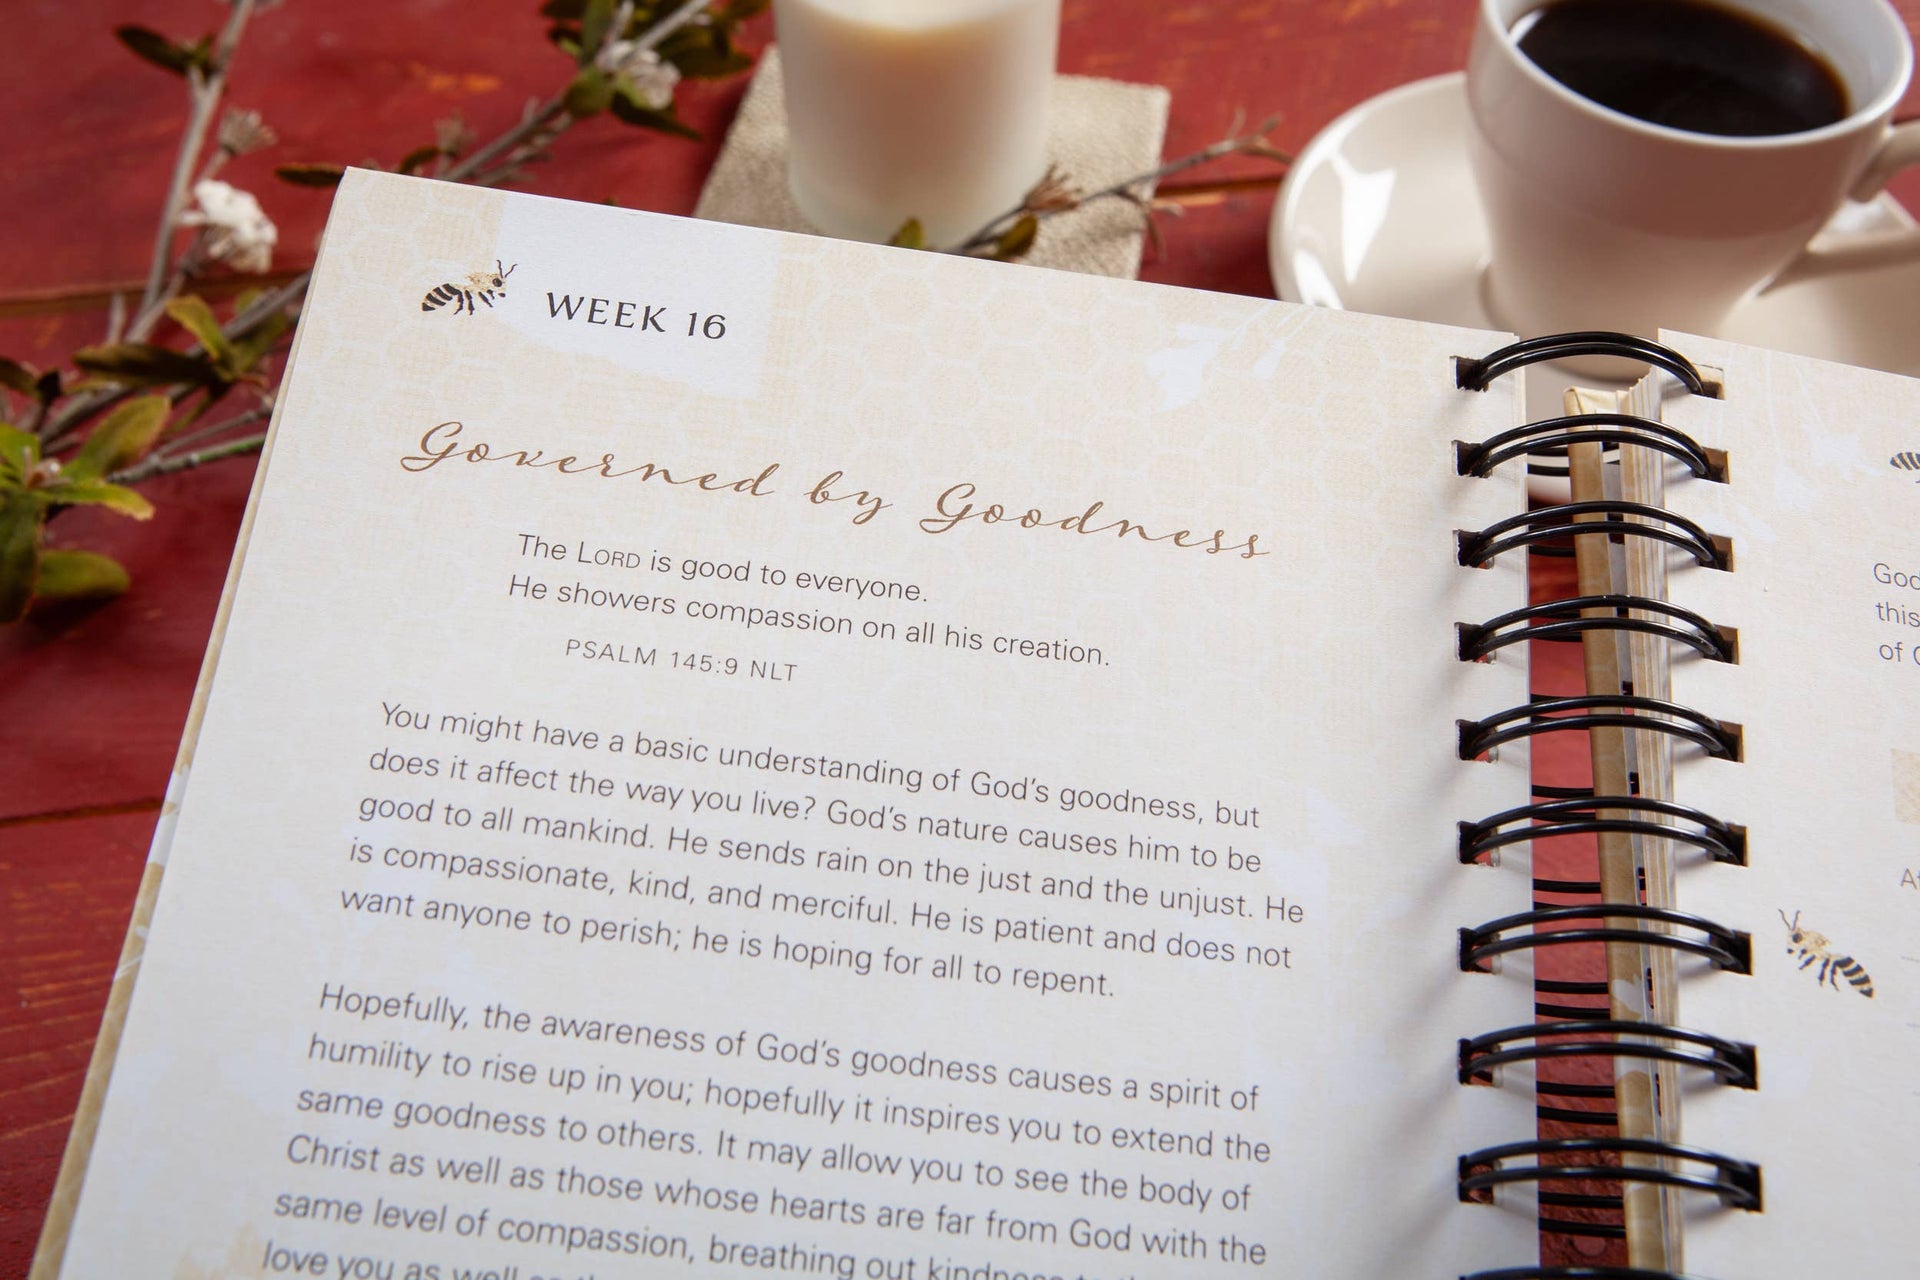 WEEK 16
Governed by Goodness
The LORD is good to everyone.
He showers compassion on all his creation.
PSALM 145:9 NLT
You might have a basic understanding of God's goodness, but
does it affect the way you live? God's nature causes him to be
good to all mankind. He sends rain on the just and the unjust. He
is compassionate, kind, and merciful. He is patient and does not
want anyone to perish; he is hoping for all to repent.
Hopefully, the awareness of God's goodness causes a spirit of
humility to rise up in you; hopefully it inspires you to extend the
same goodness to others. It may allow you to see the body of
Christ as well as those whose hearts are far from God with the
same level of compassion, breathing out kindness
love you as well
God
this
of